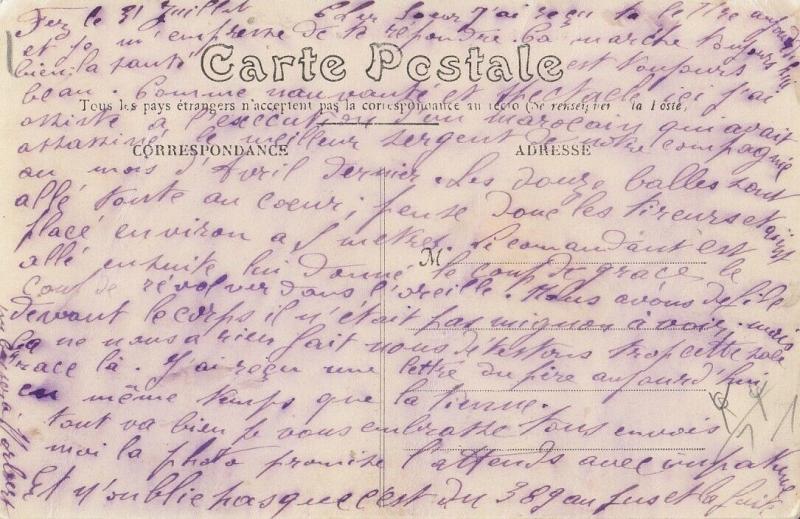 Fez le 31 Juillet Cher Soeur J'ai reçu ta lettre aujourd'hui
et je m'empresse de te repondre. Ça marche toujours
bien la santé est toujours
Carte Postale
beau. Comme nauvauté et spectacle ici j'ai
Tous les pays étrangers n'acceptent pas la correspondance au recto (Se renseigner à la Poste)
assisté a l'execution d'un marocain qui avait
assassiné le meilleur sergent de notre compagnie
CORRESPONDANCE
ADRESSE
au mois d'Avril dernier. Les douze balles sont
allé toute au coeur; pense donc les tireurs était
placé environ a 5 metres. Le comandant est
M
allé ensuite lui donné le coup de grace le
coup de révolver dans l'oreille. Nous avons défilé
devant le corps il n'était pas mignon à voir, mais
ça ne nous a rien fait nous détestons trop cette sale
race là. J'ai reçu une lettre du père aujourd'hui
en même temps que la tienne.
tout va bien je vous embrasse tous envois
moi la photo promise l'attends avec impatience
Et n'oublie pas que c'est du 389 au jus et la fuite